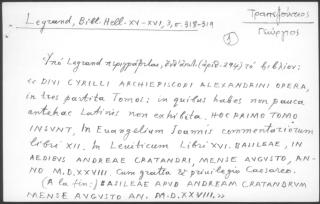 Legrand, Bibl. Hell. XV-XVI, 3, σ. 318-319
Τραπεζούντιος
Γεώργιος
Ὑπὸ Legrand περιγράφεται, (ἀριθ. 294) τὸ βιβλίον:
« DIVI CYRILLI ARCHIEPISCOPI ALEXANDRINI OPERA,
in tres partita Tomos: in quibus habes non pauca
antehac Latinis non exhibita. HOC PRIMO TOMO
INSUNT. In Evangelium Ioannis commentariorum
libri XII. In Leviticum Libri XVI. BASILEAE, IN
AEDIBUS ANDREAE CRATANDRI, MENSE AVGVSTO, AN-
NO M.D.XXVIII. Cum gratia & privilegio Caesareo.
(A la fin:) BASILEAE APVD ANDREAM CRATANDRVM
MENSE AVGVSTO AN. M.D.XXVIII. »